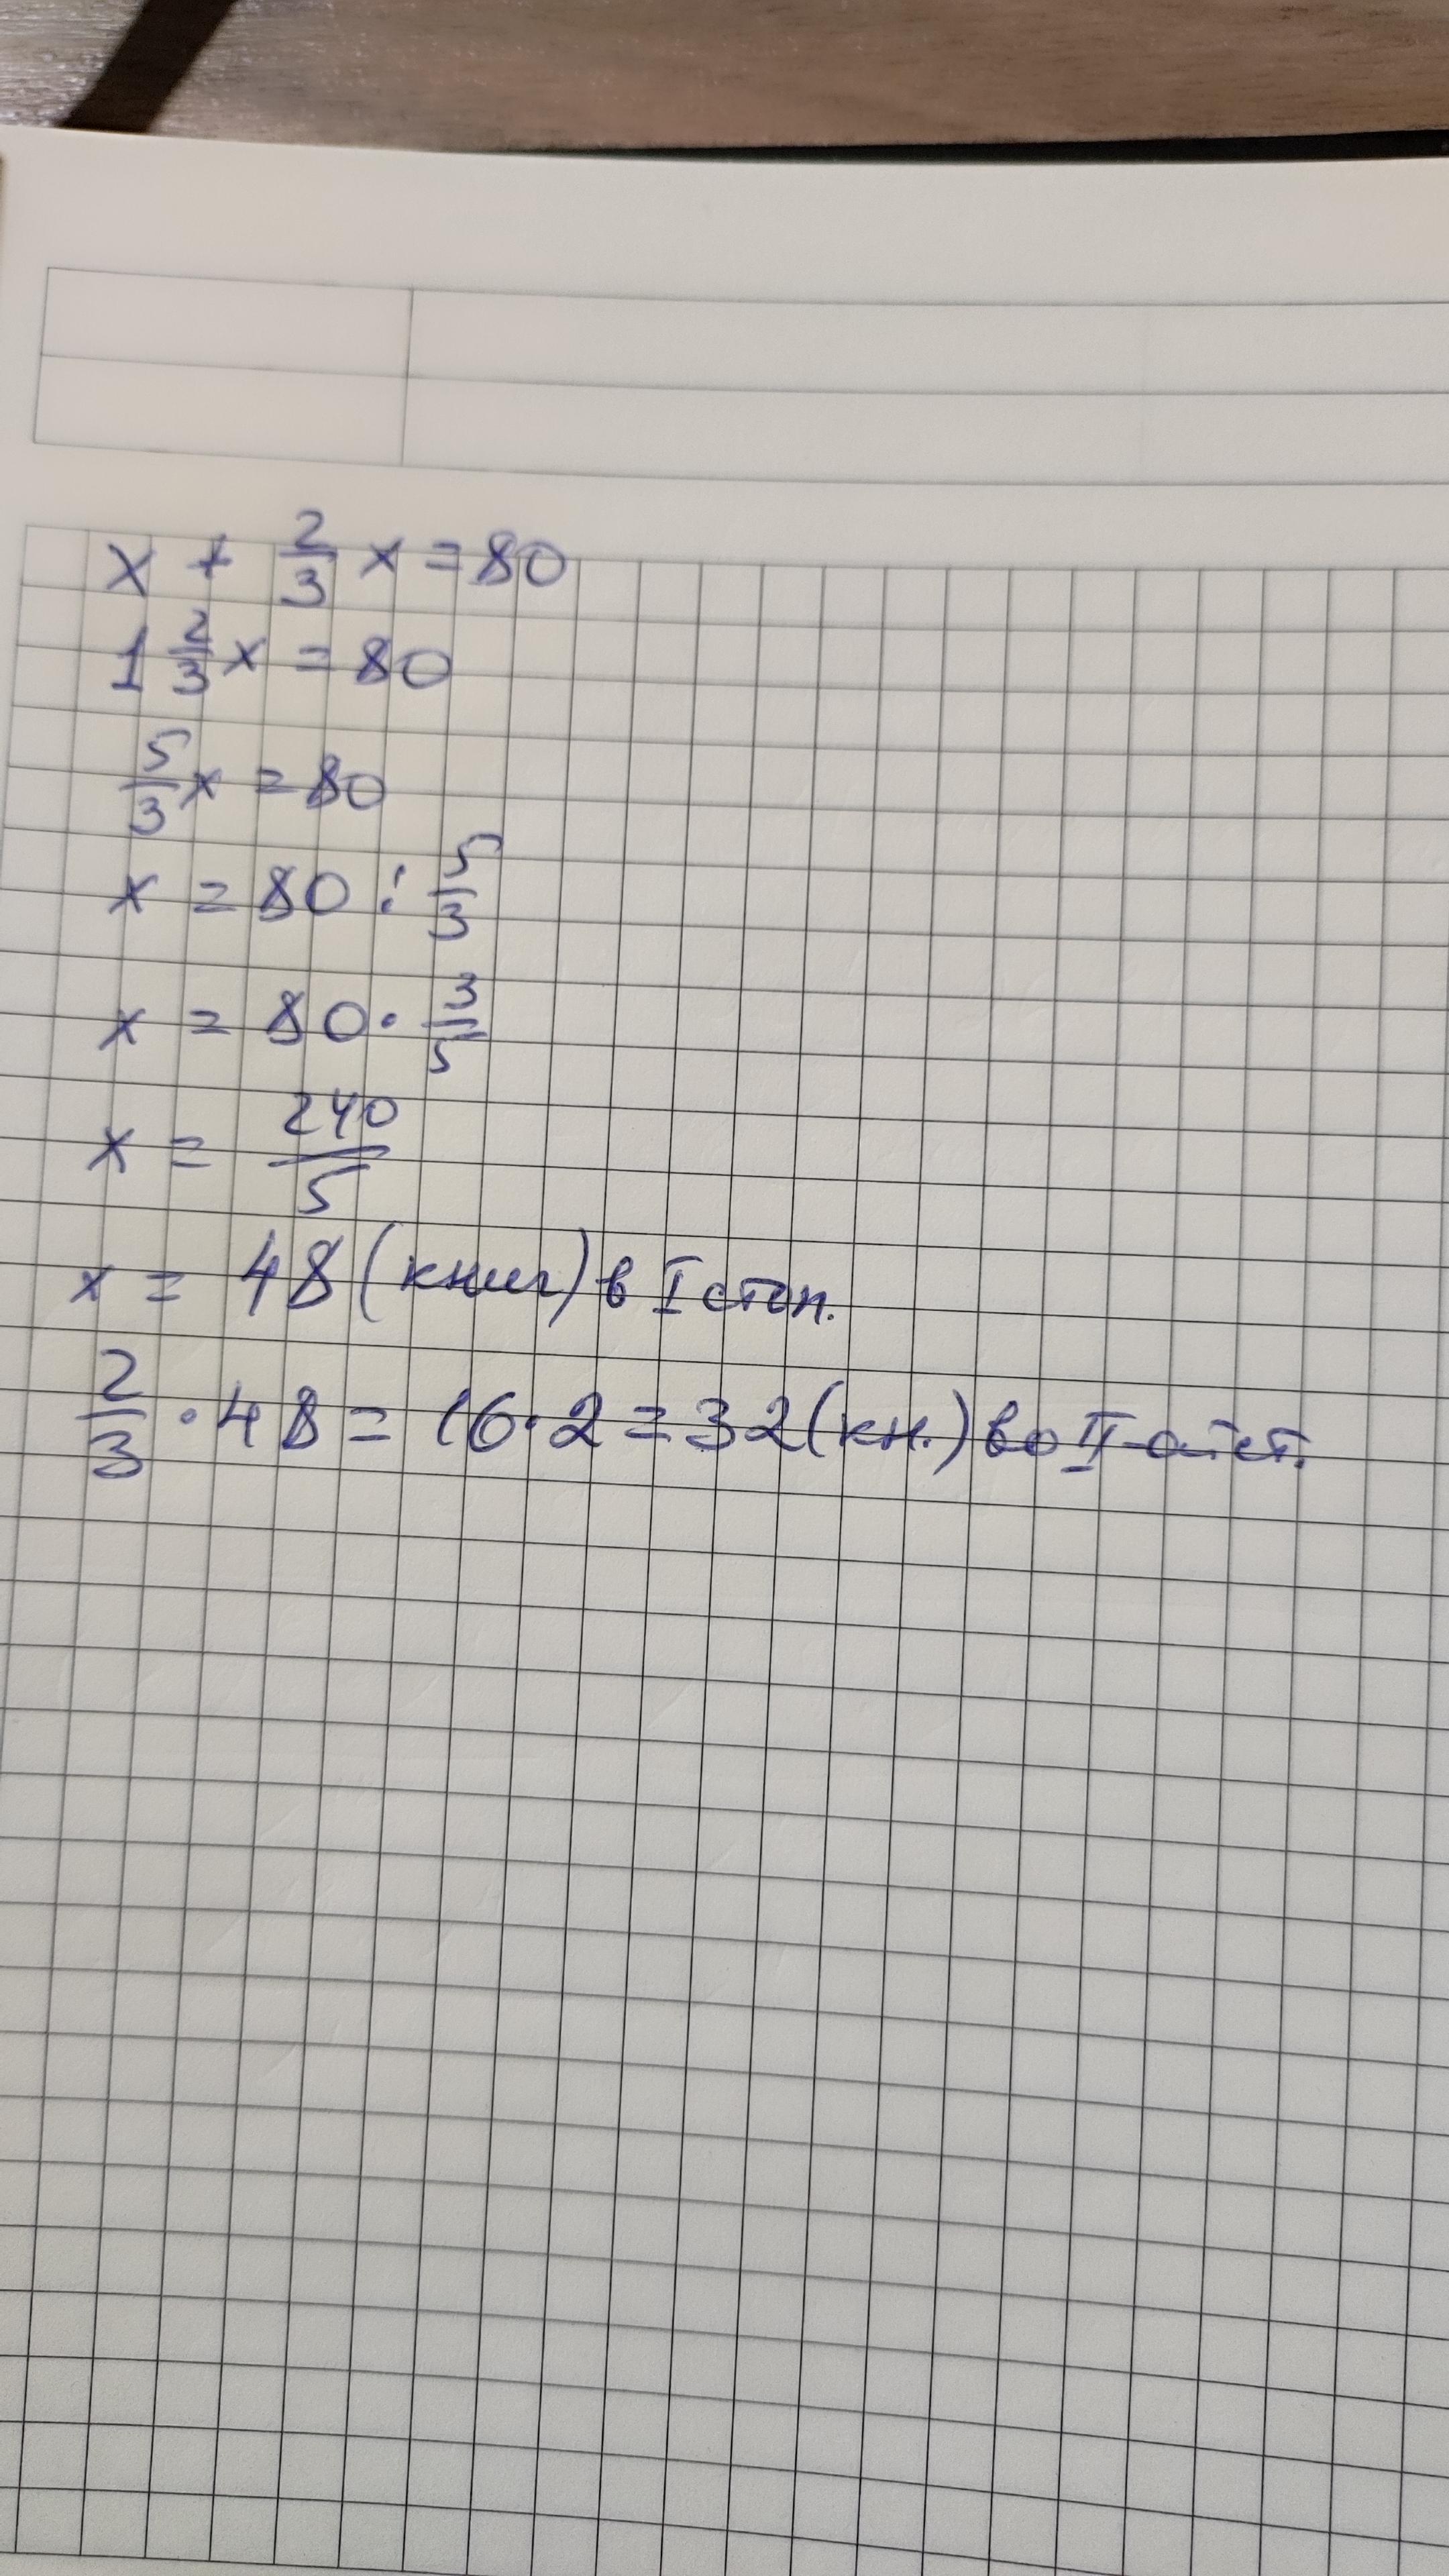 x + 2/3 x = 80
1 2/3 x = 80
5/3 x = 80
x = 80 : 5/3
x = 80 · 3/5
x = 240/5
x = 48 (книг) в I стоп.
2/3 · 48 = 16 · 2 = 32 (кн.) во II